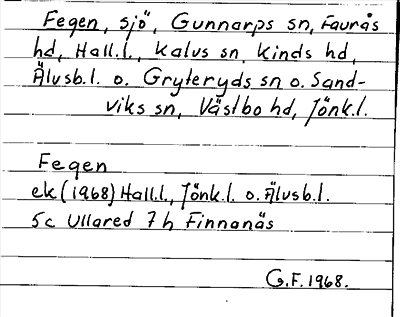 Fegen, sjö, Gunnarps sn, Faurås
hd, Hall.l., Kalus sn, Kinds hd,
Älvsb.l. o. Gryteryds sn o. Sand-
viks sn, Västbo hd, Jönk.l.
Fegen
ek (1968) Hall.l., Jönk.l. o. Älvsb.l.
5c Ullared 7h Finnanäs
G.F. 1968.